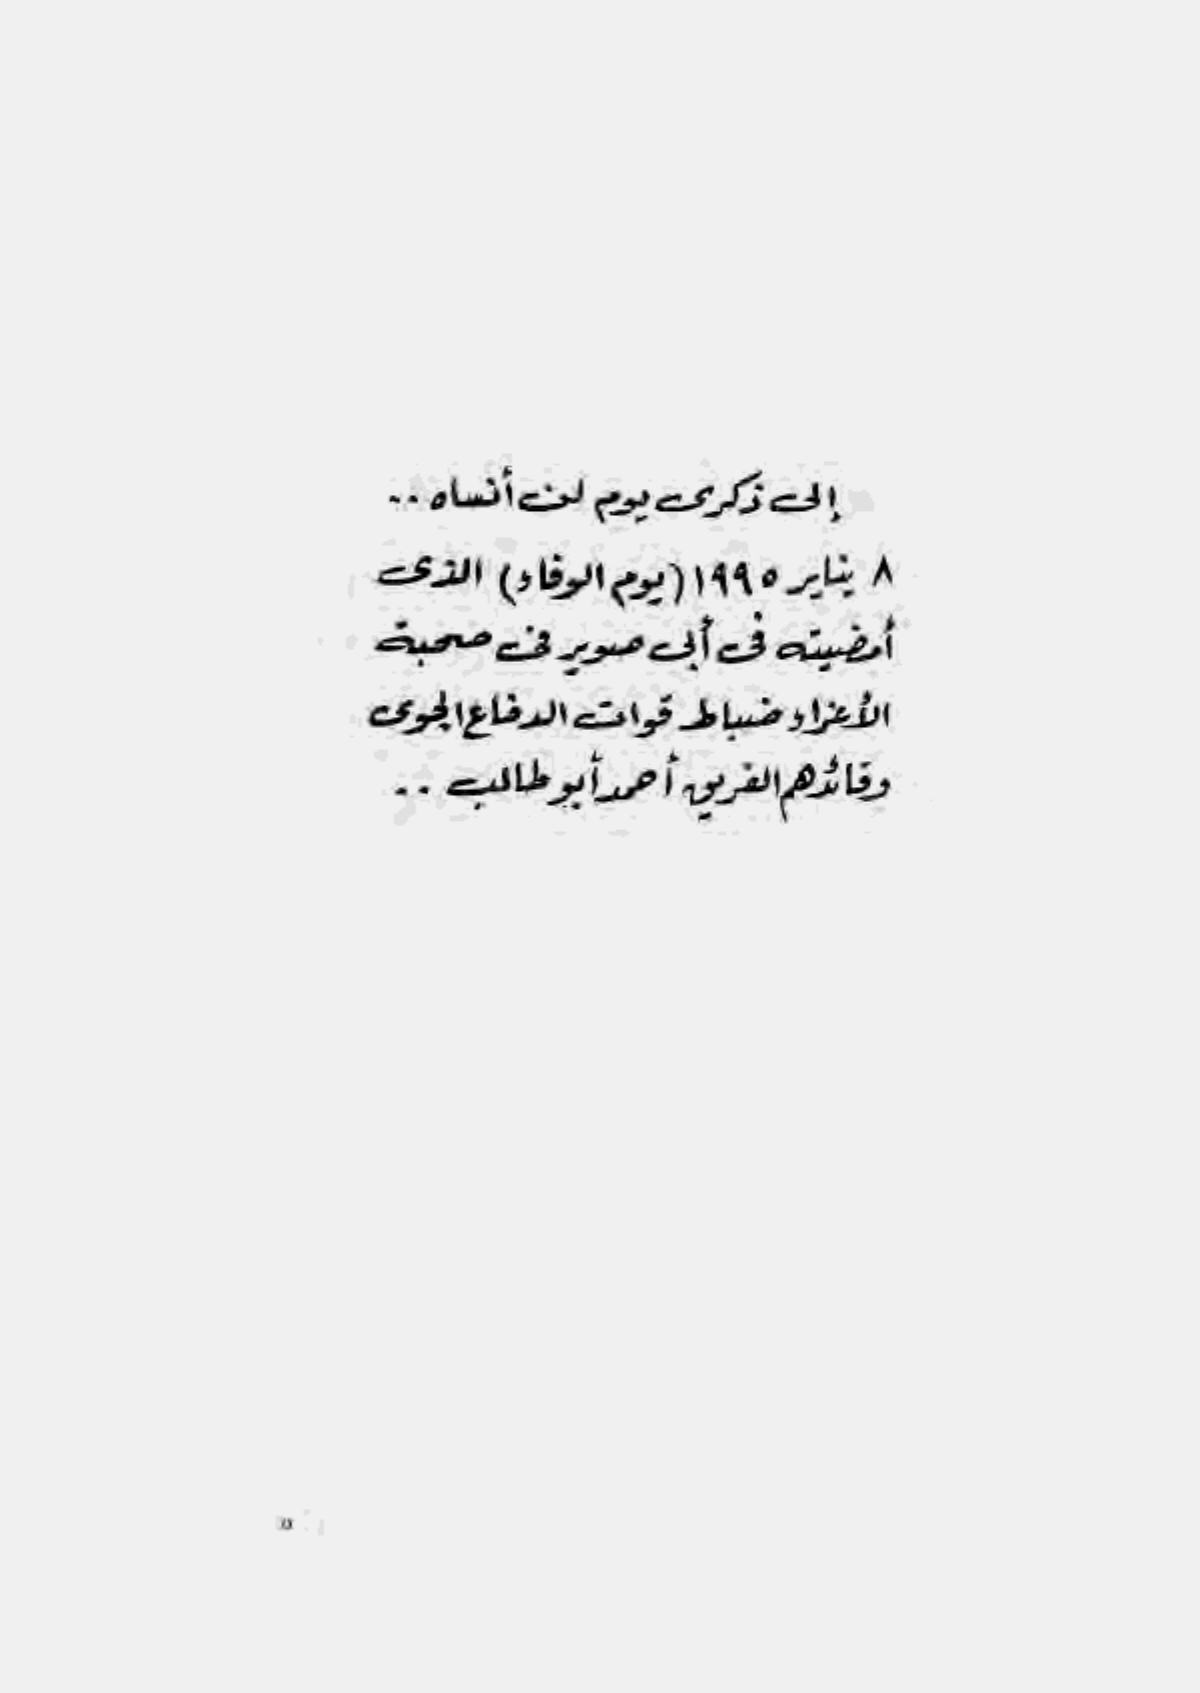 إلى ذكرى يوم لن أنساه ..
٨ يناير ١٩٩٥ (يوم الوفاء) الذى
أمضيته فى أبى صوير فى صحبة
الأعزاء ضباط قوات الدفاع الجوى
وقائدهم الفريق أحمد أبو طالب ..